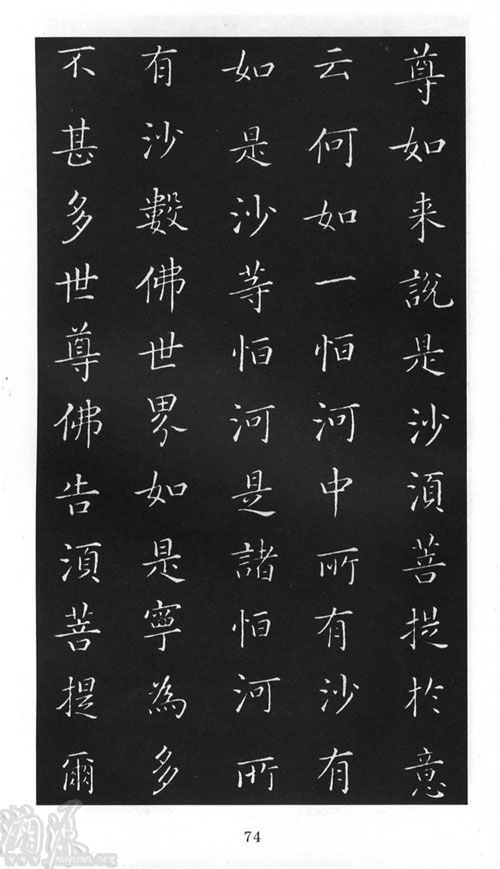 尊如来說是沙湏菩提於意
云何如一恒河中所有沙有
如是沙等恒河是諸恒河所
有沙數佛世界如是寧為多
不甚多世尊佛告湏菩提爾
74
溯源
www.suyuan.org